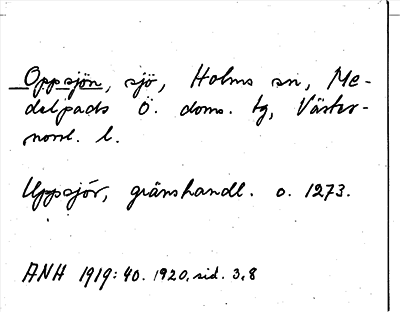 Oppsjön, sjö, Holms sn, Me-
delpads ö. doms. tg, Väster-
norrl. l.
Uppsjór, gränshandl. o. 1273.
ANH 1919:40. 1920, sid. 3,8